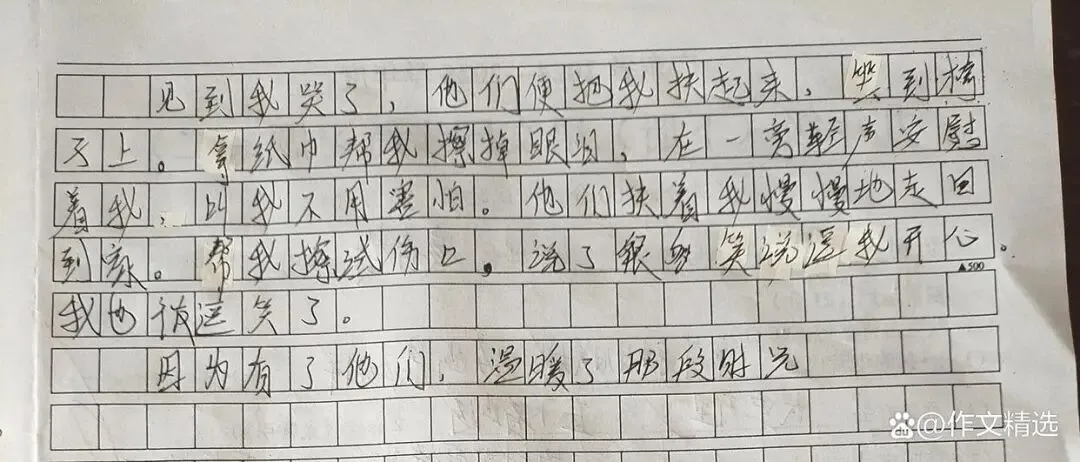 见到我哭了，他们便把我扶起来，坐到椅
子上。拿纸巾帮我擦掉眼泪，在一旁轻声安慰
着我，叫我不用害怕。他们扶着我慢慢地走回
到家。帮我擦试伤口，说了很多笑话逗我开心。
▲500
我也被逗笑了。
因为有了他们，温暖了那段时光
Bai du @作文精选